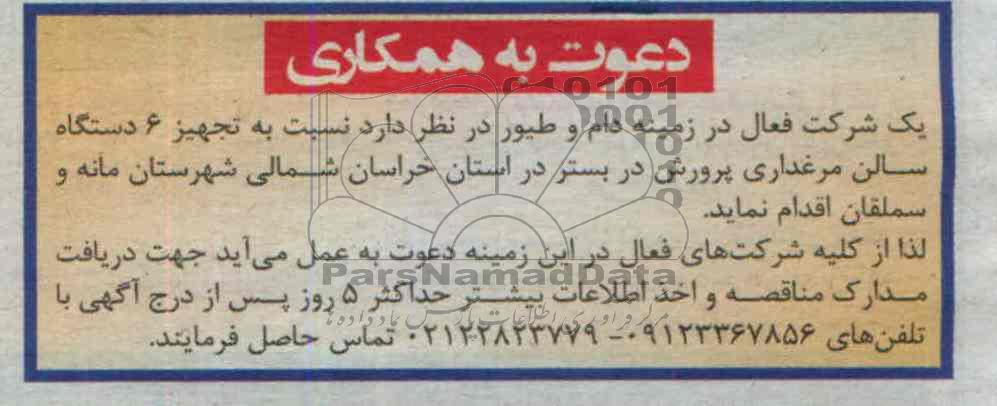 دعوت به همکاری
یک شرکت فعال در زمینه دام و طیور در نظر دارد نسبت به تجهیز ۶ دستگاه
سالن مرغداری پرورش در بستر در استان خراسان شمالی شهرستان مانه و
سملقان اقدام نماید.
لذا از کلیه شرکت‌های فعال در این زمینه دعوت به عمل می‌آید جهت دریافت
ParsNamadData
مدارک مناقصه و اخذ اطلاعات بیشتر حداکثر ۵ روز پس از درج آگهی با
تلفن‌های ۰۹۱۲۳۳۶۷۸۵۶- ۰۲۱۲۲۸۴۳۷۷۹ تماس حاصل فرمایند.